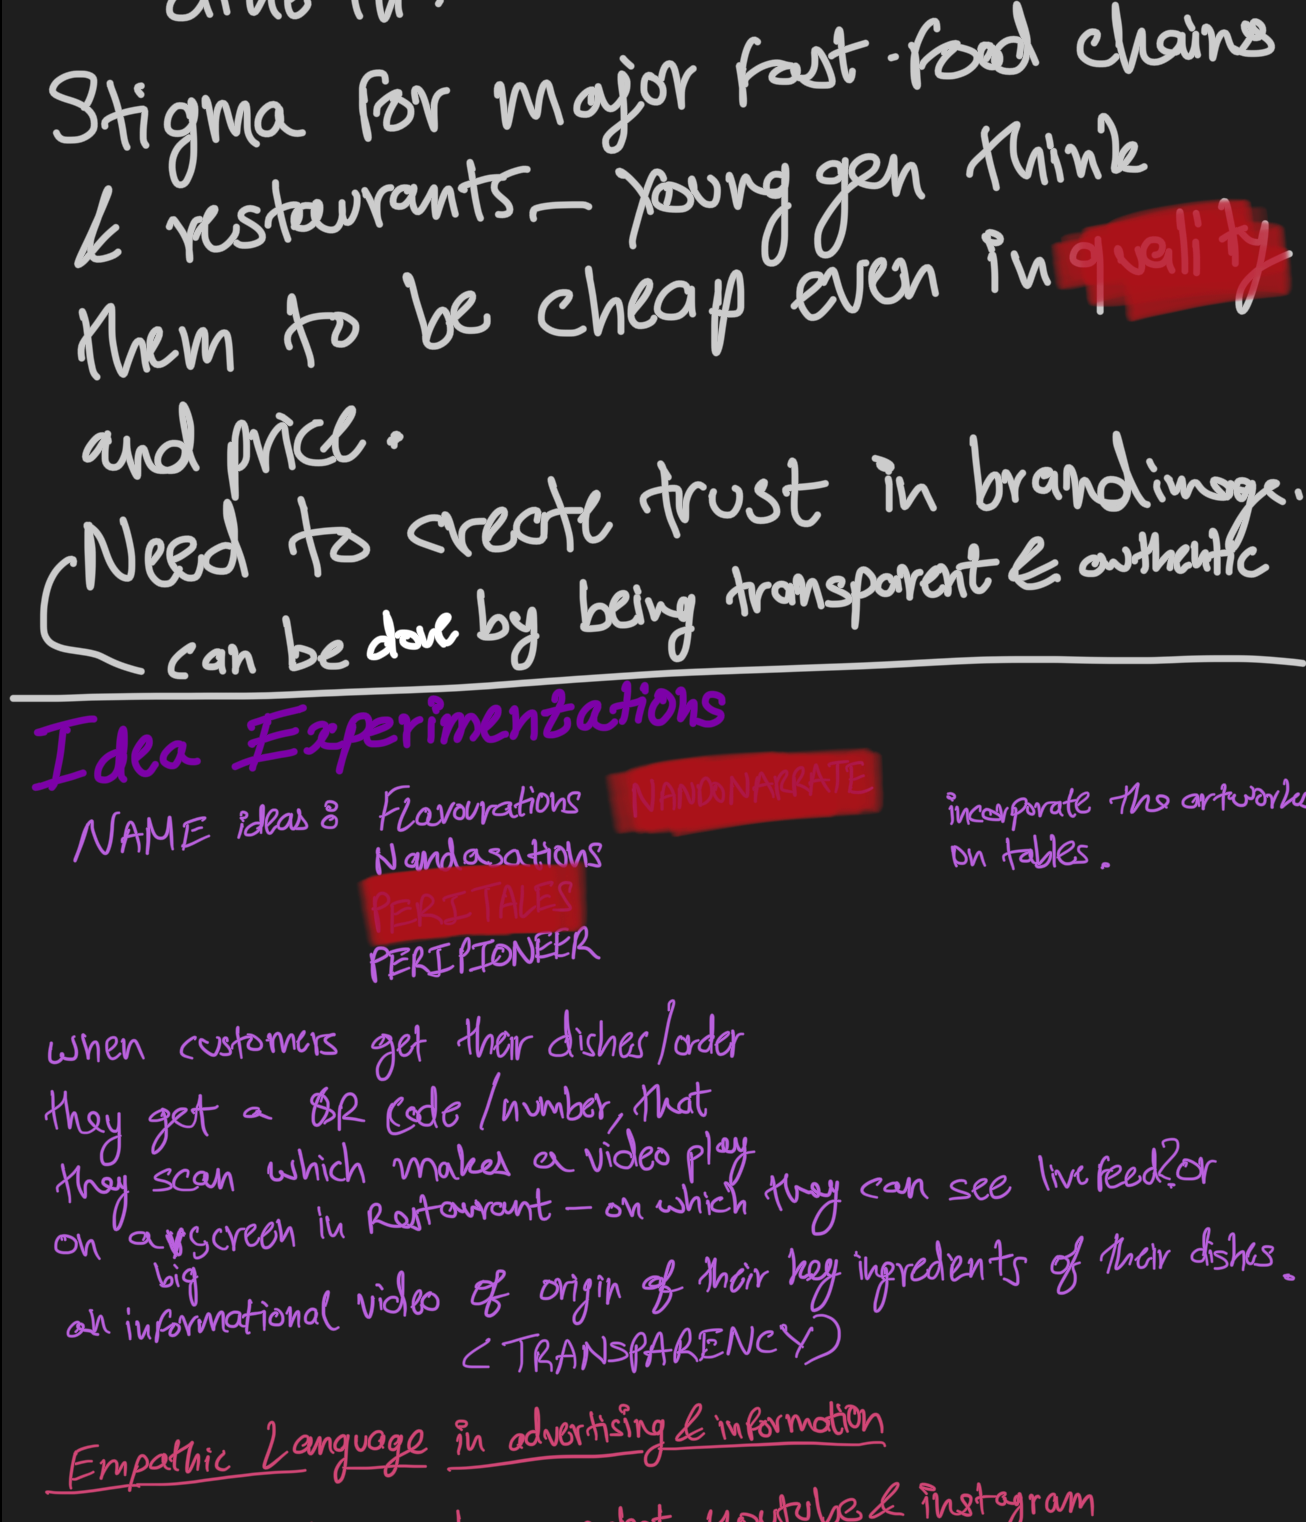 Stigma for major fast-food chains
& restaurants - young gen think
them to be cheap even in quality
and price.
Need to create trust in brand image.
can be done by being transparent & authentic
Idea Experimentations
NAME ideas: Flavourations NANDONARRATE
incorporate the artworks
on tables.
Nandasations
PERITALES
PERIPIONEER
when customers get their dishes/order
they get a QR code/number, that
they scan which makes a video play
on a big screen in Restaurant - on which they can see livefeed? or
an informational video of origin of their key ingredients of their dishes.
(TRANSPARENCY)
Empathic Language in advertising & information
youtube & instagram